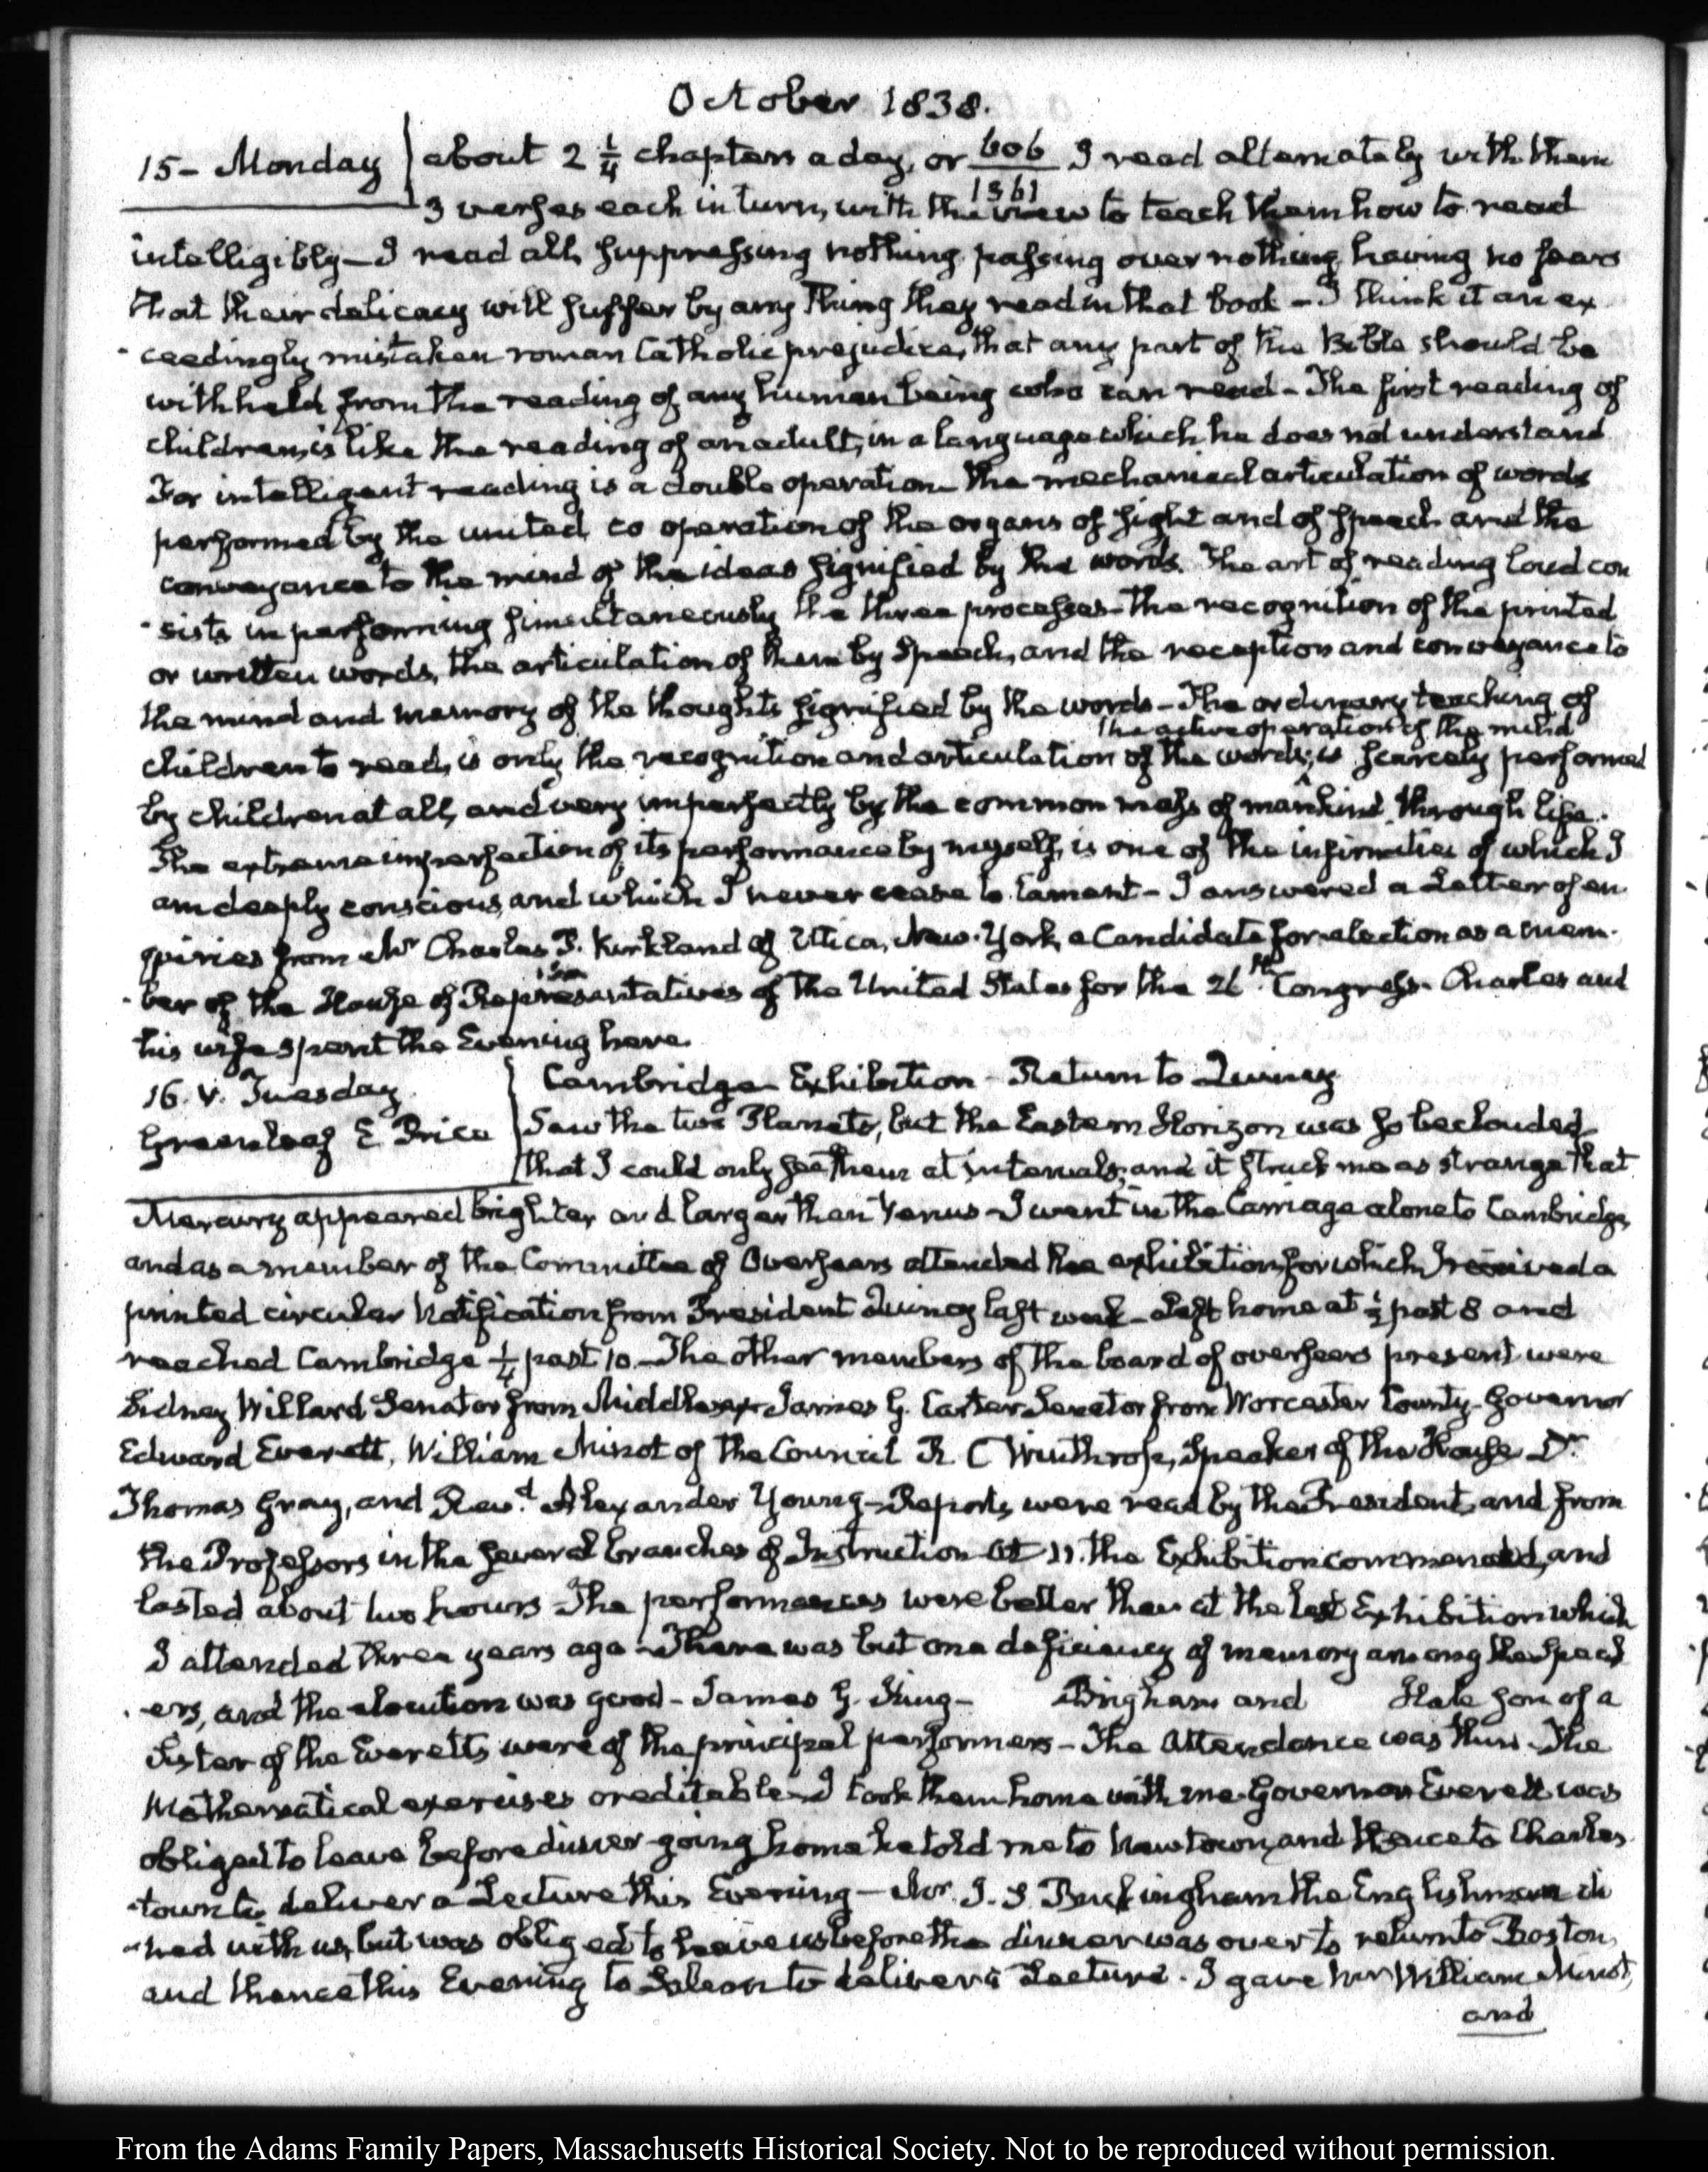 October 1838.
15 – Monday about 2 1/4 chapters a day, or 606/1361 I read alternately with them
3 verses each in turn, with the view to teach them how to read
intelligibly – I read all, suppressing nothing, passing over nothing, having no fears
that their delicacy will suffer by any thing they read in that book – I think it an ex
-ceedingly mistaken roman Catholic prejudice, that any part of the Bible should be
withheld from the reading of any human being who can read – The first reading of
children, is like the reading of an adult, in a language which he does not understand
For intelligent reading is a double operation – the mechanical articulation of words
performed by the united co operation of the organs of sight and of speech and the
conveyance to the mind of the ideas signified by the words. The art of reading loud con
-sists in performing simultaneously the three processes – the recognition of the printed
or written words, the articulation of them by speech, and the reception and conveyance to
the mind and memory of the thoughts signified by the words – The ordinary teaching of
the active operation of the mind
children to read, is only the recognition and articulation of the words; ^ is scarcely performed
by children at all, and very imperfectly by the common mass of mankind through life.
The extreme imperfection of its performance by myself, is one of the infirmities of which I
am deeply conscious, and which I never cease to lament – I answered a Letter of en
quiries from Mr Charles P. Kirkland of Utica, New-York, a Candidate for election as a mem-
-ber of the House of Representatives of the United States for the 26th Congress – Charles and
his wife spent the Evening here.
16. V. Tuesday. Cambridge – Exhibition – Return to Quincy
Greenleaf E Price Saw the two Planets, but the Eastern Horizon was so beclouded
that I could only see them at intervals; and it struck me as strange that
Mercury appeared brighter and larger than Venus – I went in the Carriage alone to Cambridge,
and as a member of the Committee of Overseers attended the exhibition, for which I received a
printed circular Notification from President Quincy last week – left home at 1/2 past 8 and
reached Cambridge 1/4 past 10 – The other members of the board of overseers present were
Sidney Willard Senator from Middlesex – James G. Carter Senator from Worcester County – Governor
Edward Everett, William Minot of the Council R. C Winthrop, Speaker of the House Dr
Thomas Gray, and Revd Alexander Young – Reports were read by the President, and from
the Professors in the several branches of Instruction – at 11. the Exhibition commenced, and
lasted about two hours – The performances were better than at the last Exhibition which
I attended three years ago – There was but one deficiency of memory among the Speak
-ers, and the elocution was good – James G. King – Bingham and Hale son of a
Sister of the Everetts were of the principal performers – The Attendance was thin – The
Mathematical exercises creditable – I took them home with me – Governor Everett was
obliged to leave before dinner – going home he told me to Newtown, and thence to Charles
-town to deliver a Lecture this Evening – Mr. J. S. Buckingham the Englishman di
-ned with us, but was obliged to leave us before the dinner was over to return to Boston,
and thence this Evening to Salem to deliver a Lecture. I gave Mr William Minot,
and
From the Adams Family Papers, Massachusetts Historical Society. Not to be reproduced without permission.